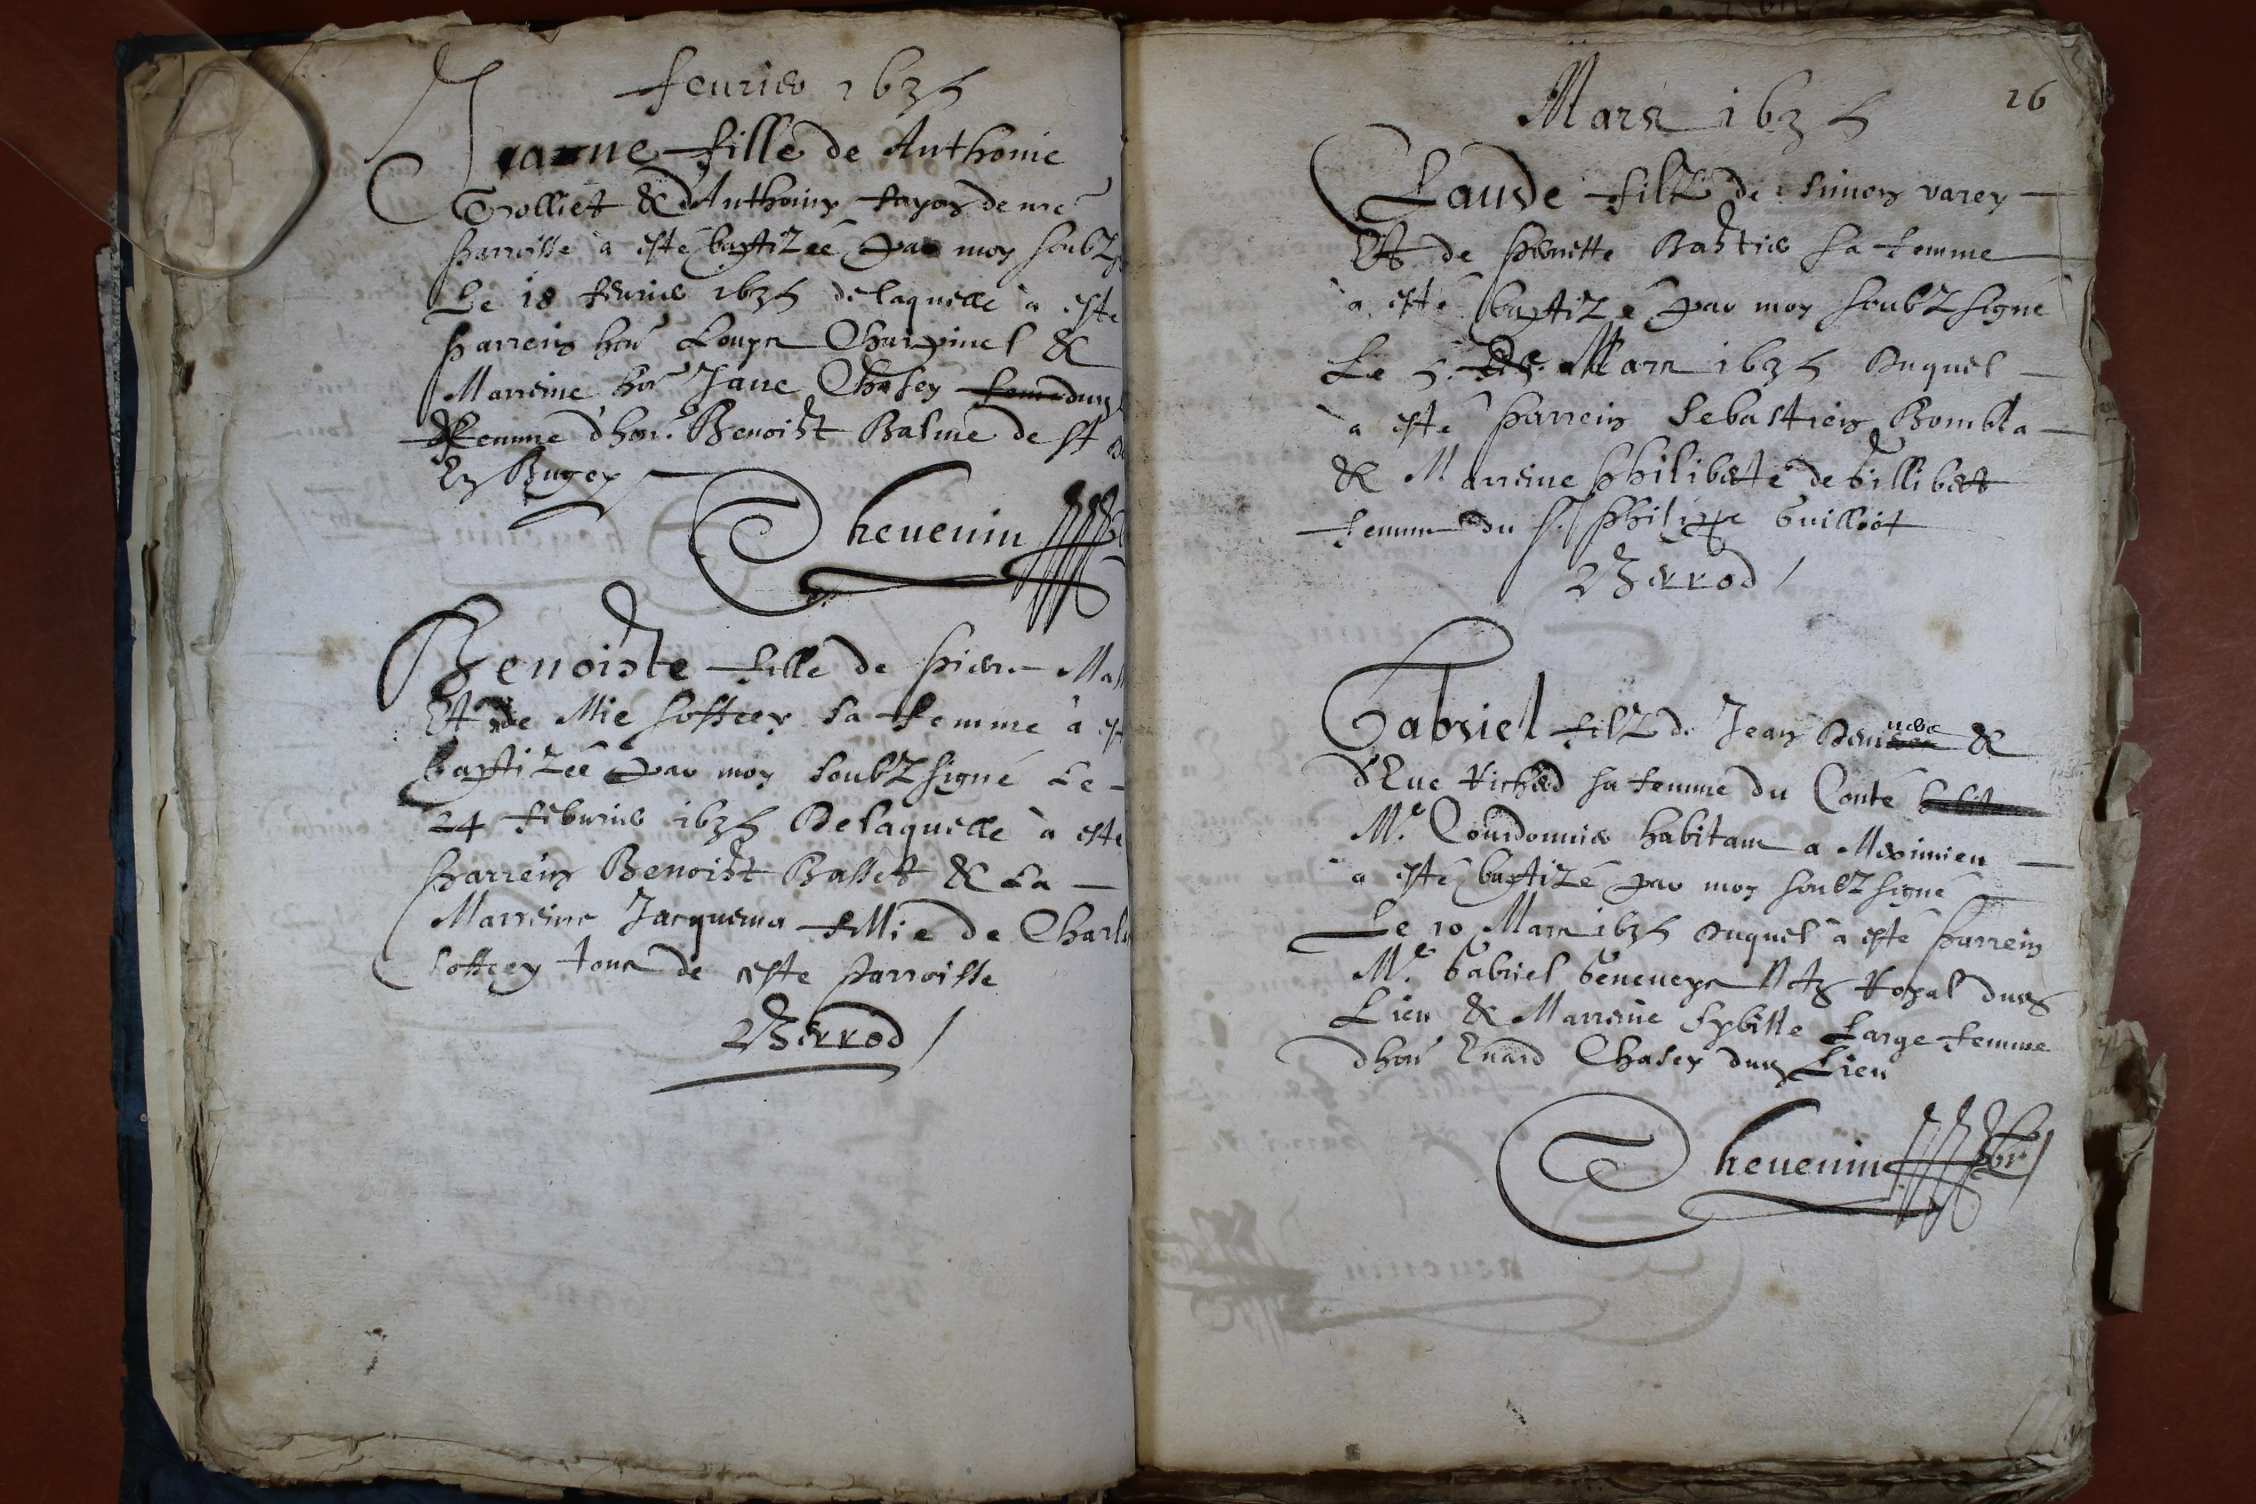 feurier 1635
Jeanne fille de Anthoine
Golliet & d'Anthoine fayon de me
parroisse à esté baptizée par moy soubz
Le 18 feurier 1635 de laquelle à esté
parrein hon Louys Charpinel &
Marreine hon Jane Chasey
femme d'hon. Benoist Balme de St
En Bugey
Cheuenin
Benoiste fille de pierre
Et de Mie sottiey sa femme à
baptizée par moy soubzsigné Le
24 feburier 1635 Delaquelle à esté
parrein Benoist Basset & La
Marreine Jacquema fillie de Charl
sottiey tous de ceste parroisse
Berrod
16
Mars 1635
Claude filz de simon varey
Et de pierrette Bastie sa femme
à esté baptizé par moy soubzsigné
Le 5. Mars 1635 Duquel
à esté parrein sebastien Bombla
& Marreine philiberte de billibert
femme du s. philippe Guilliot
Berrod
Gabriel filz de Jean &
d'Eue Richard sa femme du Conté
M.e Courdonnier habitant a Meximieu
à esté baptizé par moy soubzsigné
Le 10 Mars 1635 duquel à esté parrein
M.e Gabriel Geneueys Not Royal dud
Lieu & Marreine sybille Large femme
d'hon Euard Chasey dud Lieu
Cheuenin